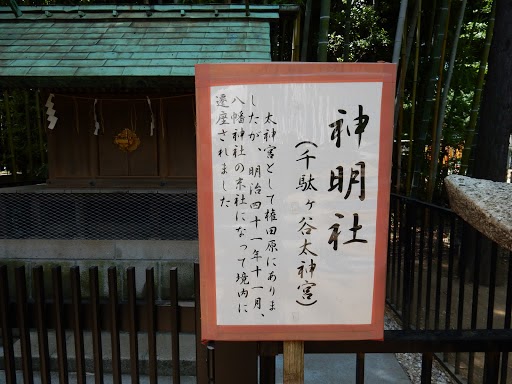 神明社
(千駄ヶ谷太神宮)
太神宮として権田原にありま
したが、明治四十一年十一月、
八幡神社の末社になって境内に
遷座されました